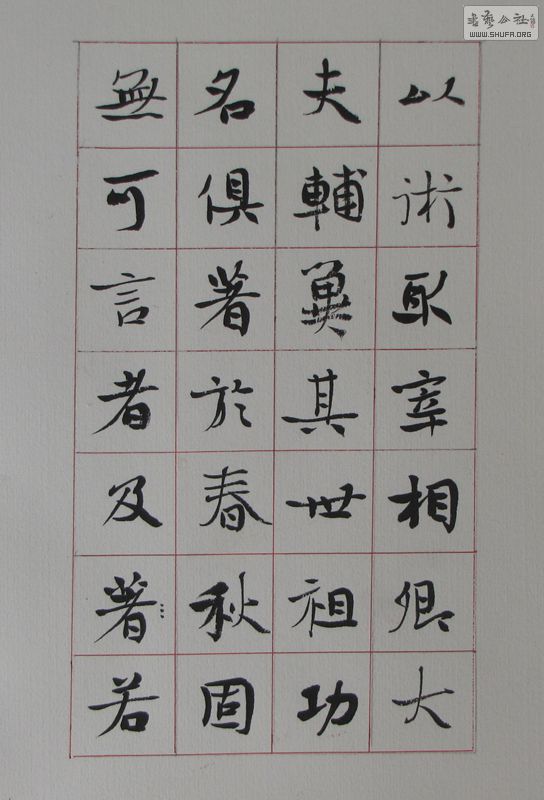 以術取宰相卿大
夫輔翼其世祖功
名俱著於春秋固
無可言者及著若
書藝公社
WWW.SHUFA.ORG